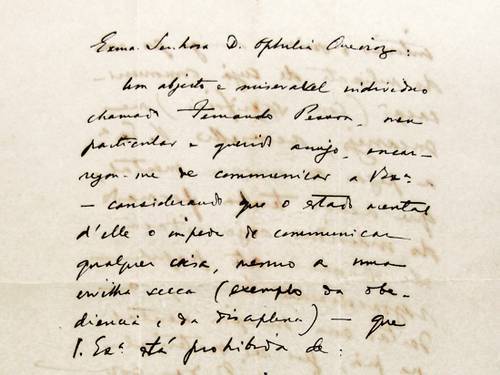 Exma. Senhora D. Ophelia Queiroz:
Um abjecto e miseravel individuo
chamado Fernando Pessoa, meu
particular e querido amigo, encar-
regou-me de communicar a V. Exª.
— considerando que o estado mental
d'elle o impede de communicar
qualquer coisa, mesmo a uma
ervilha secca (exemplo da obe-
diencia e da disciplina) — que
V. Exª. está prohibida de: